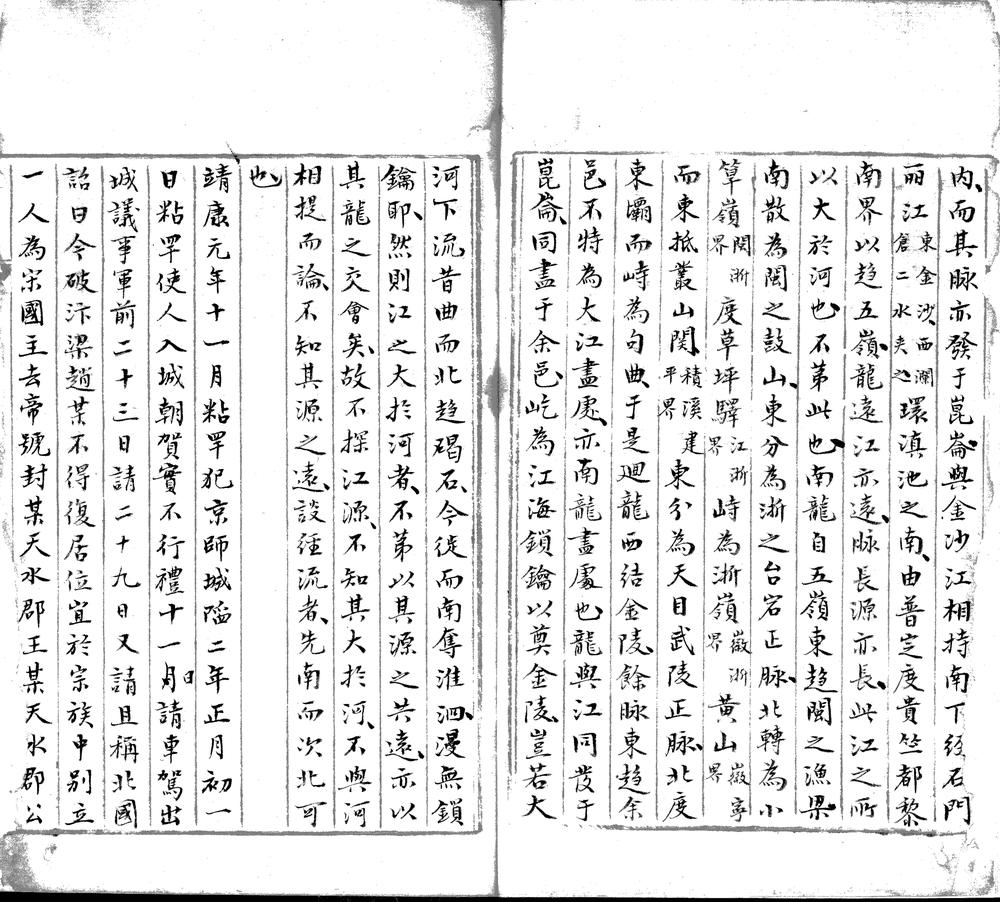 内而其脉亦發于崑崙與金沙江相持南下経石門
丽江東金沙西瀾倉二水夹之環滇池之南由普定度貴竺都黎
南界以趋五嶺龍遠江亦遠脉長源亦長此江之所
以大於河也不第此也南龍自五嶺東趋閩之漁梁
南散為閩之鼓山東分為浙之台宕正脉北轉為小
箪嶺閩浙界度草坪驛江浙界峙為浙嶺徽浙界黄山徽寧界
而東抵叢山関積溪建平界東分為天目武陵正脉北度
東壩而峙為句曲于是廻龍西结金陵餘脉東趋余
邑不特為大江盡處亦南龍盡處也龍與江同發于
崑崙同盡于余邑屹為江海鎖鑰以奠金陵豈若大
河下流昔曲而北趋碣石今徙而南奪淮泗漫無鎖
鑰耶然則江之大於河者不第以其源之共遠亦以
其龍之交會矣故不探江源不知其大於河不與河
相提而論不知其源之遠談経流者先南而次北可
也
靖康元年十一月粘罕犯京師城陥二年正月初一
日粘罕使人入城朝賀實不行禮十一月日請車駕出
城議事軍前二十三日請二十九日又請且稱北國
詔曰今破汴梁趙某不得復居位宜於宗族中别立
一人為宋國主去帝號封某天水郡王某天水郡公